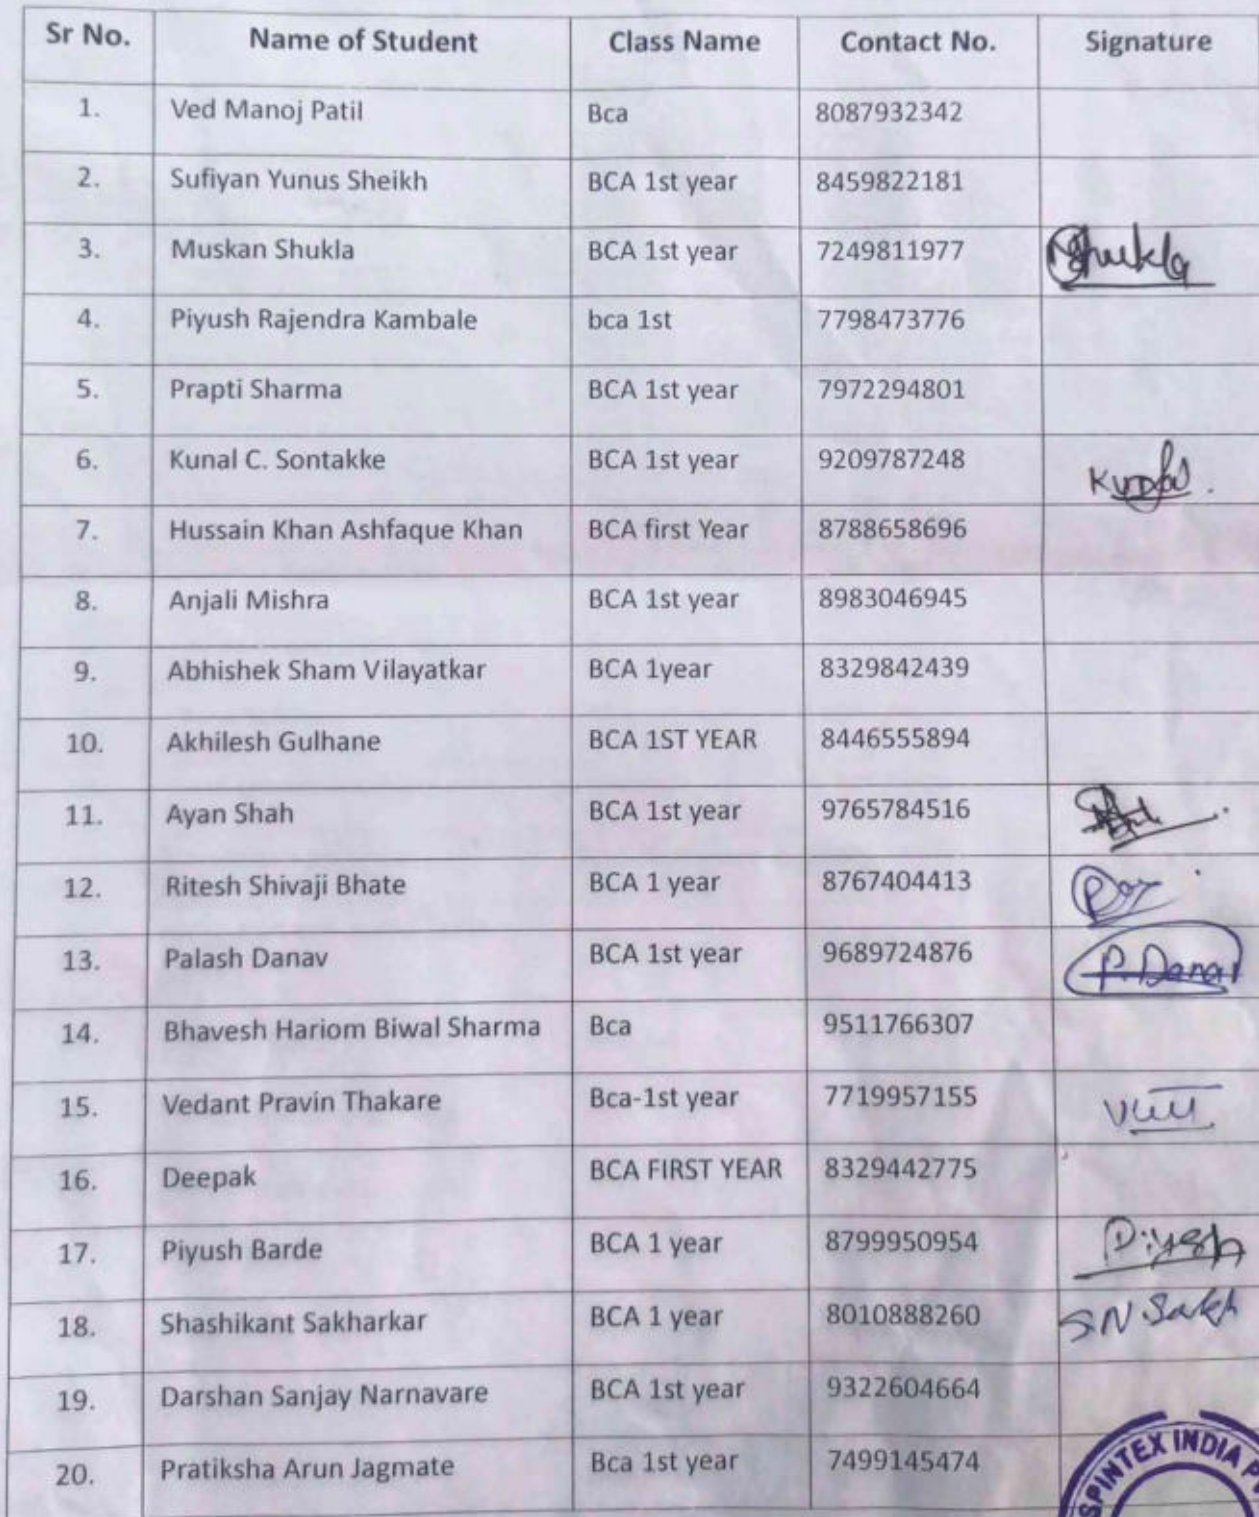 Sr No. Name of Student Class Name Contact No. Signature
1. Ved Manoj Patil Bca 8087932342
2. Sufiyan Yunus Sheikh BCA 1st year 8459822181
3. Muskan Shukla BCA 1st year 7249811977 Shukla
4. Piyush Rajendra Kambale bca 1st 7798473776
5. Prapti Sharma BCA 1st year 7972294801
6. Kunal C. Sontakke BCA 1st year 9209787248 Kunal.
7. Hussain Khan Ashfaque Khan BCA first Year 8788658696
8. Anjali Mishra BCA 1st year 8983046945
9. Abhishek Sham Vilayatkar BCA 1year 8329842439
10. Akhilesh Gulhane BCA 1ST YEAR 8446555894
11. Ayan Shah BCA 1st year 9765784516
12. Ritesh Shivaji Bhate BCA 1 year 8767404413
13. Palash Danav BCA 1st year 9689724876 P. Danav
14. Bhavesh Hariom Biwal Sharma Bca 9511766307
15. Vedant Pravin Thakare Bca-1st year 7719957155
16. Deepak BCA FIRST YEAR 8329442775
17. Piyush Barde BCA 1 year 8799950954 Piyush
18. Shashikant Sakharkar BCA 1 year 8010888260 S.N Sakh
19. Darshan Sanjay Narnavare BCA 1st year 9322604664
20. Pratiksha Arun Jagmate Bca 1st year 7499145474
SPINTEX INDIA PV